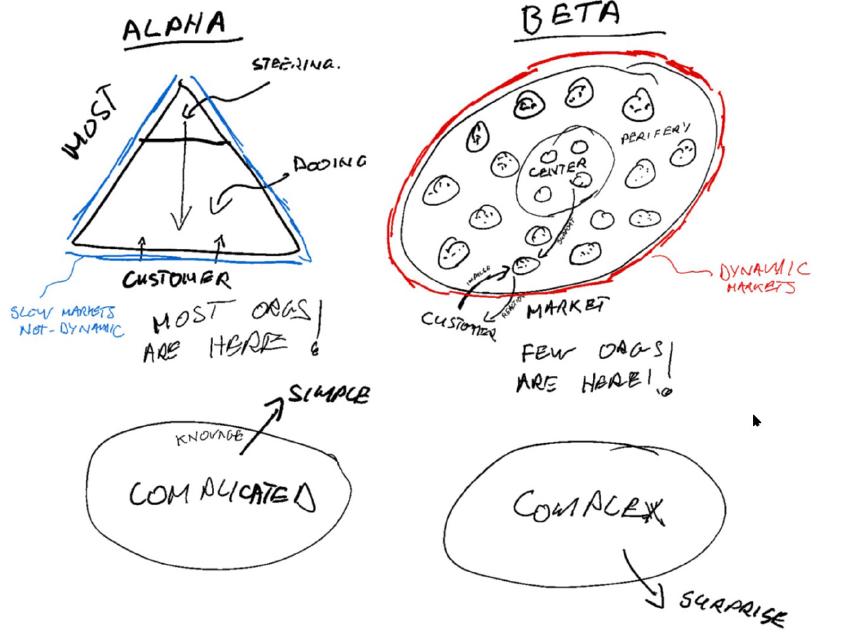 ALPHA
STEERING.
MOST
DOOING
CUSTOMER
SLOW MARKETS
NOT-DYNAMIC
MOST ORGS
ARE HERE!
BETA
PERIFERY
CENTER
SUPPORT
IMPULSE
REACTION
CUSTOMER
MARKET
DYNAMIC
MARKETS
FEW ORGS
ARE HERE!!
SIMPLE
COMPLICATED
COMPLEX
SURPRISE